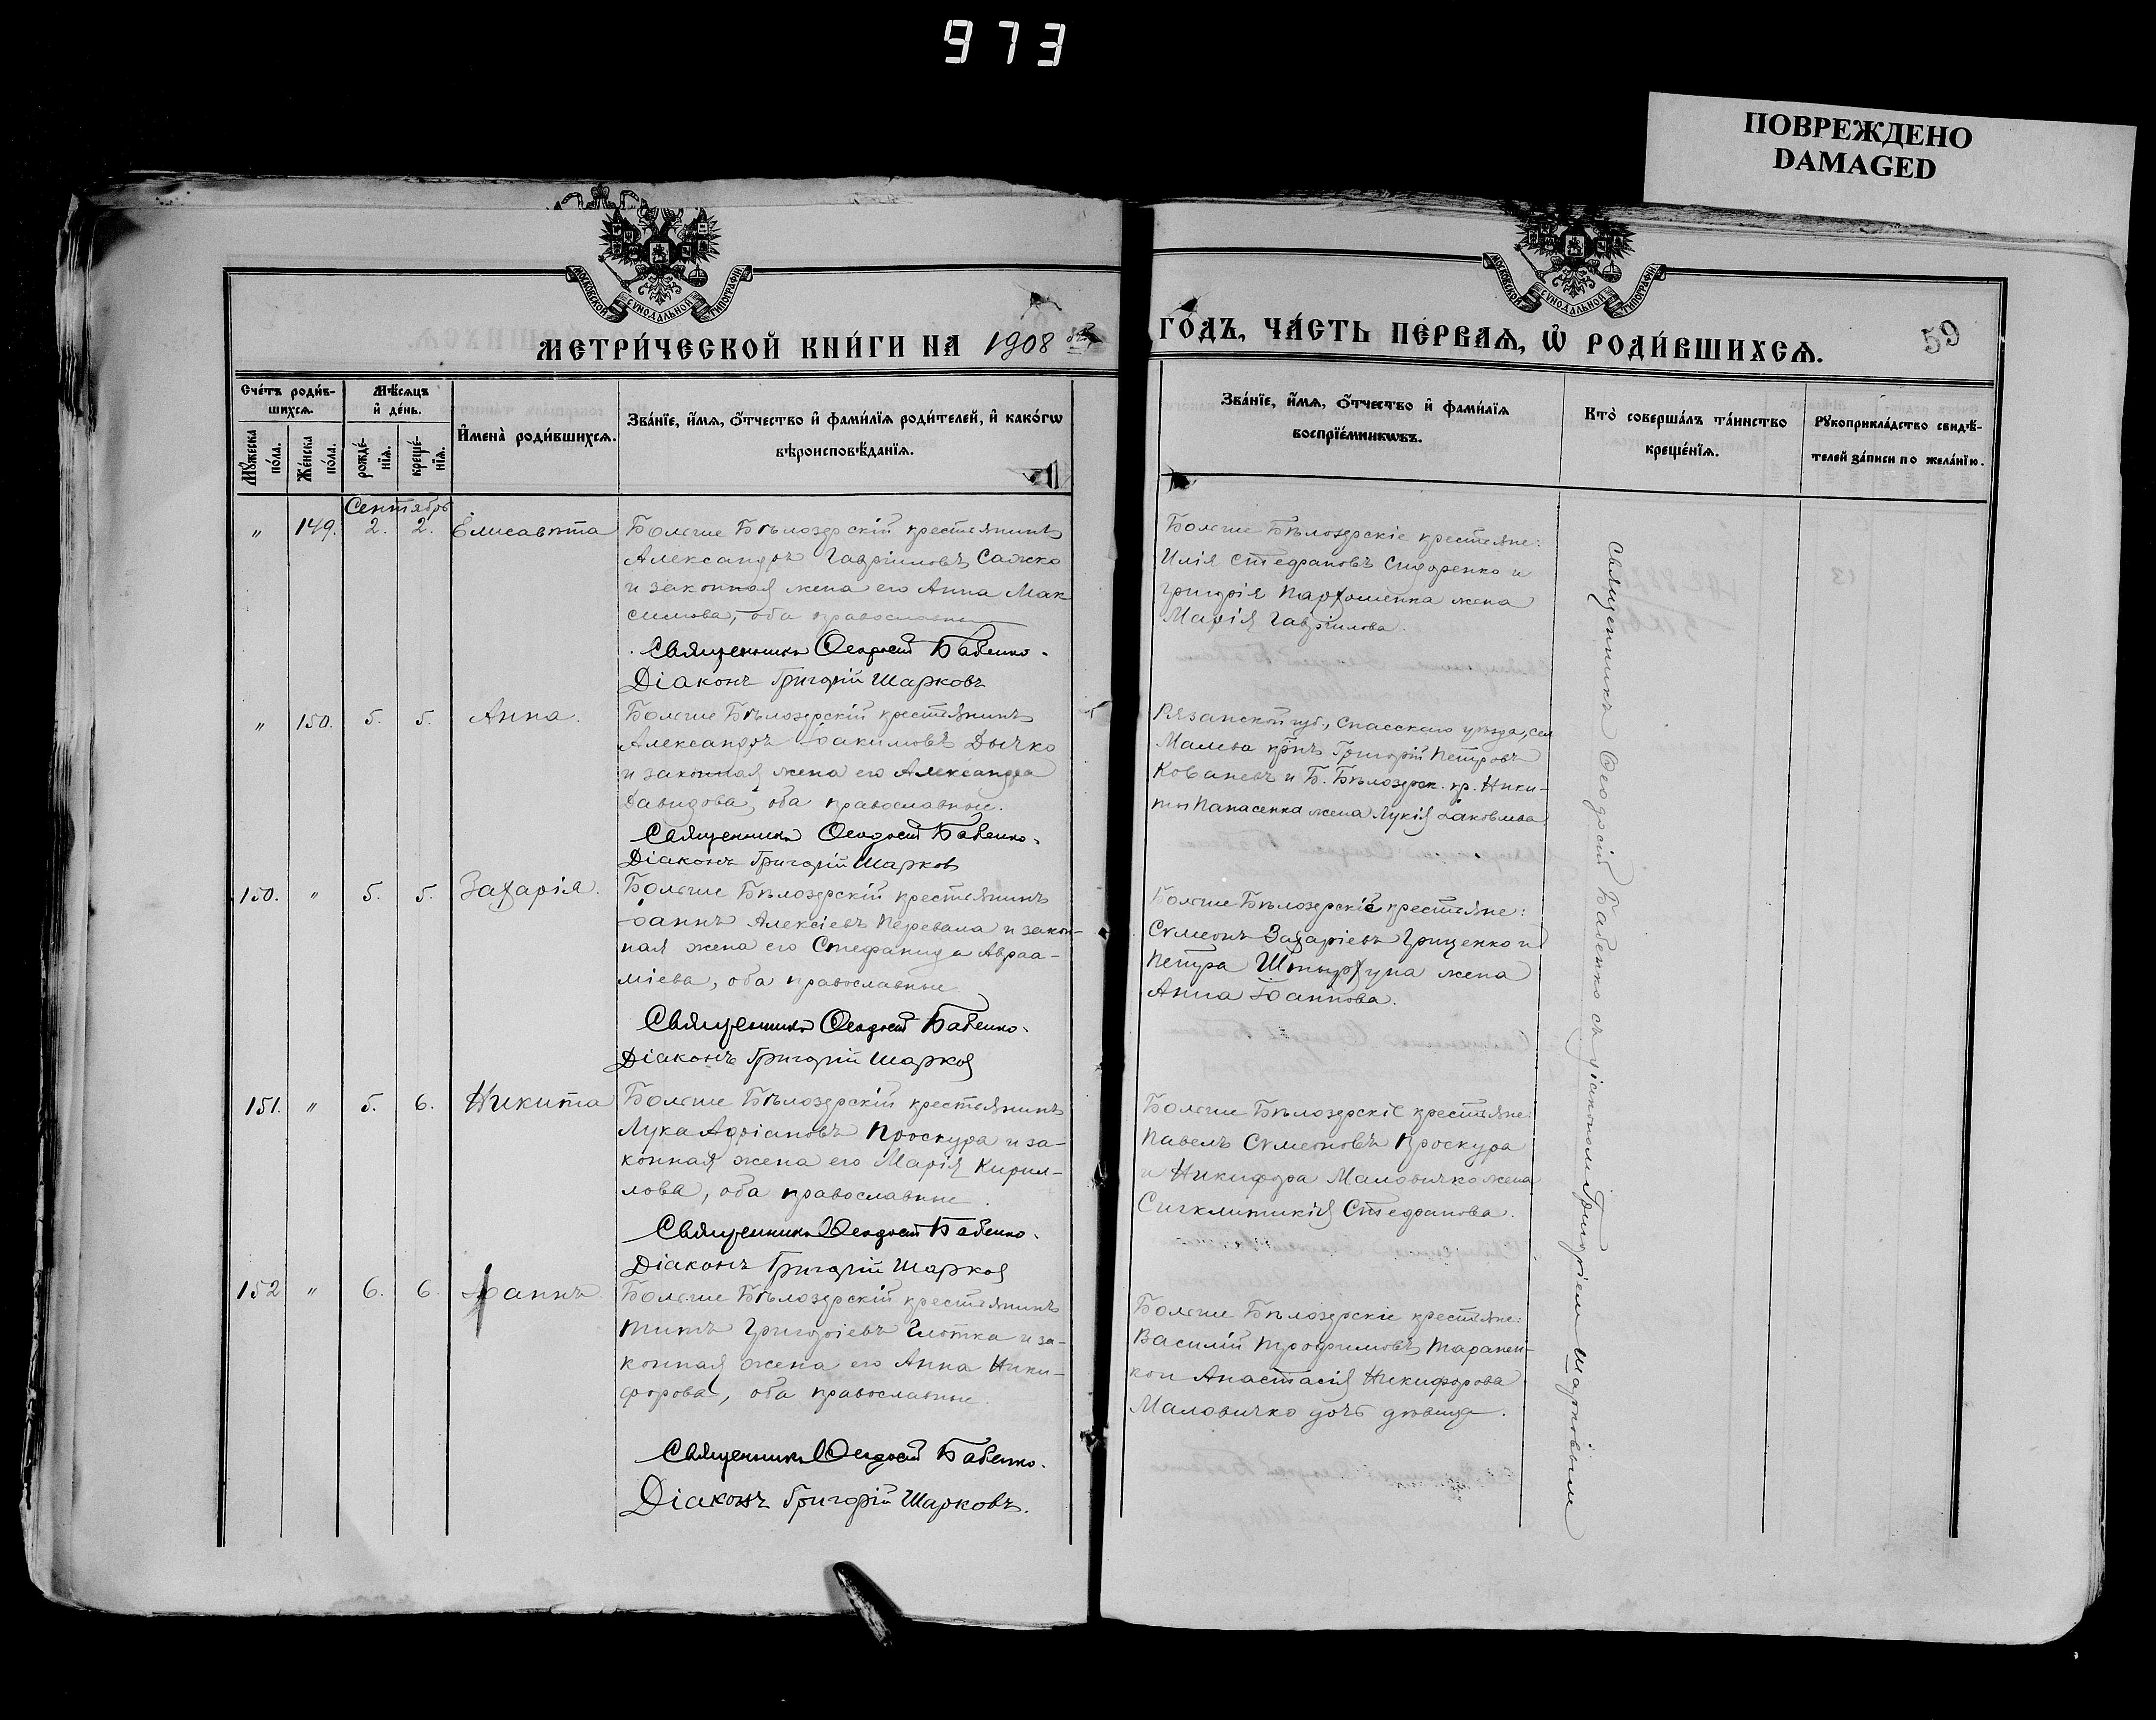 973
ПОВРЕЖДЕНО
DAMAGED
МОСКОВСКОЙ СѴНОДАЛЬНОЙ ТИПОГРАФІИ
МОСКОВСКОЙ СѴНОДАЛЬНОЙ ТИПОГРАФІИ
МЕТРИ́ЧЕСКОЙ КНИ́ГИ НА 1908
ГО́ДЪ, ЧА́СТЬ ПЕ́РВАѦ, Ѡ҆ РОДИ́ВШИХСѦ.
59
Сче́тъ роди́в-
шихсѧ.
Мѣ́сѧцъ
и҆ де́нь.
Мꙋ́жеска
по́ла.
Же́нска
по́ла.
рожде́-
нїѧ.
креще́-
нїѧ.
И҆мена̀ роди́вшихсѧ.
Зва́нїе, и҆́мѧ, ѻ҆́тчество и҆ фами́лїѧ роди́телей, и҆ како́гѡ
вѣроисповѣ́данїѧ.
Зва́нїе, и҆́мѧ, ѻ҆́тчество и҆ фами́лїѧ
воспрїе́мникѡвъ.
Кто̀ соверша́лъ та́инство
креще́нїѧ.
Рꙋкоприкла́дство свидѣ́-
телей за́писи по жела́нїю.
Сентябрь
" 149. 2. 2. Елисавета
Больше Бѣлозерскій крестьянинъ
Александръ Гавріиловъ Сажко
и законная жена его Анна Мак
симова, оба православные
Священникъ Ѳеодосій Бабенко.
Діаконъ Григорій Шарковъ
Больше Бѣлозерскіе крестьяне:
Илія Стефановъ Сидоренко и
Григорія Пархоменка жена
Марія Гавріилова.
" 150. 5. 5. Анна.
Больше Бѣлозерскій крестьянинъ
Александръ Іоакимовъ Дычко
и законная жена его Александра
Давидова, оба православные.
Священникъ Ѳеодосій Бабенко.
Діаконъ Григорій Шарков
Рязанской губ., Спасскаго уѣзда, сел
Малева крнъ Григорій Петровъ
Кованевъ и Б. Бѣлозерск. кр. Ники-
ты Панасенка жена Лукія Іаковлева
150. " 5. 5. Захарія.
Больше Бѣлозерскій крестьянинъ
Іоаннъ Алексіевъ Перевала и закон-
ная жена его Стефанида Авраа-
міева, оба православные
Священникъ Ѳеодосій Бабенко.
Діаконъ Григорій Шарков
Больше Бѣлозерскіе крестьяне:
Сѵмеонъ Захаріевъ Гриценко и
Петра Штырхуна жена
Анна Іоаннова.
151. " 5. 6. Никита
Больше Бѣлозерскій крестьянинъ
Лука Адріановъ Проскура и за-
конная жена его Марія Кирил-
лова, оба православные
Священникъ Ѳеодосій Бабенко.
Діаконъ Григорій Шарков
Больше Бѣлозерскіе крестьяне:
Павелъ Сѵмеоновъ Проскура
и Никифора Маловичко жена
Сигклитикія Стефанова.
152 " 6. 6. Іоаннъ
Больше Бѣлозерскій крестьянинъ
Титъ Григоріевъ Глотка и за-
конная жена его Анна Ники-
форова, оба православные.
Священникъ Ѳеодосій Бабенко.
Діаконъ Григорій Шарковъ.
Больше Бѣлозерскіе крестьяне:
Василій Трофимовъ Таранен-
ко и Анастасія Никифорова
Маловичко дочь дѣвица.
Священникъ Ѳеодосій Бабенко съ діакономъ Григоріем Шарковым